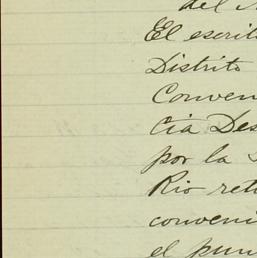 del
El escrit
Distrito
Conven
Cia Des
por la
Rio ret
conveni
el pun